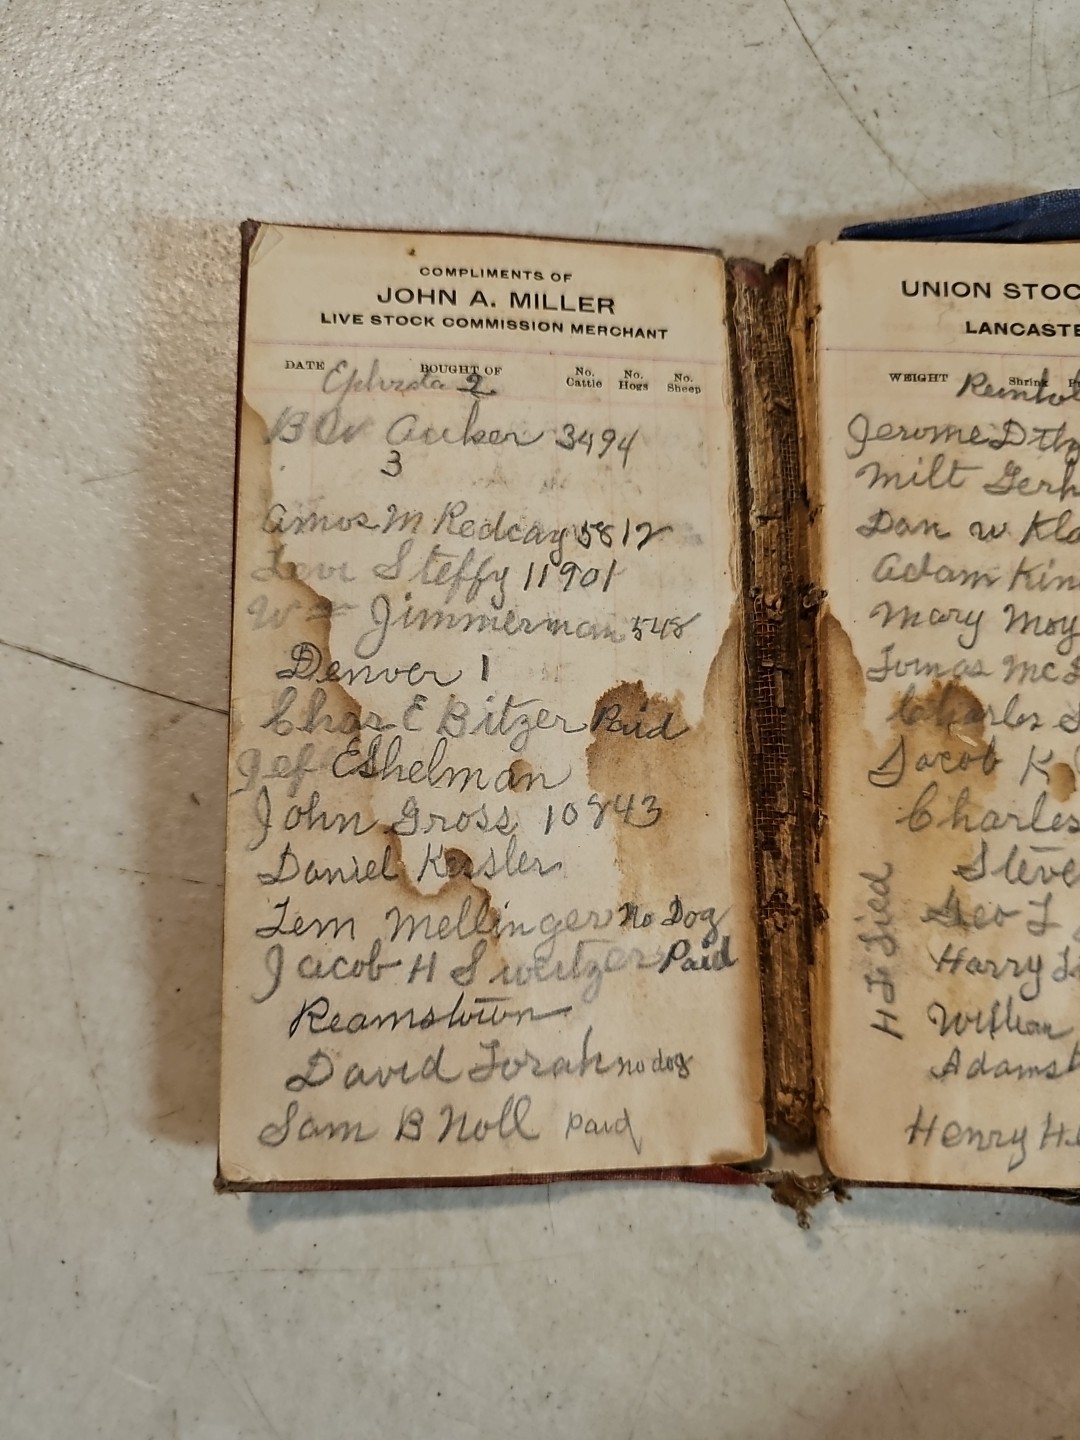 COMPLIMENTS OF
JOHN A. MILLER
LIVE STOCK COMMISSION MERCHANT
DATE BOUGHT OF No. Cattle No. Hogs No. Sheep
Ephrata 2
B W Auker 3494
3
Amos M Redcay 5812
Levi Steffy 11901
Wm Zimmerman 548
Denver 1
Chas E Bitzer Paid
Jef Eshelman
John Gross 10843
Daniel Kessler
Lem Mellinger no Dog
Jacob H Sweitzer Paid
Reamstown
David no dog
Sam B Noll paid
UNION STOC
LANCASTE
WEIGHT Shrink
Reinhol
Jerome D
Milt Gerh
Dan W Kla
Adam Kin
Mary Moy
Mc
Charles S
Jacob K
Charles
Steve
Geo L
Harry
William
Adamst
Henry H